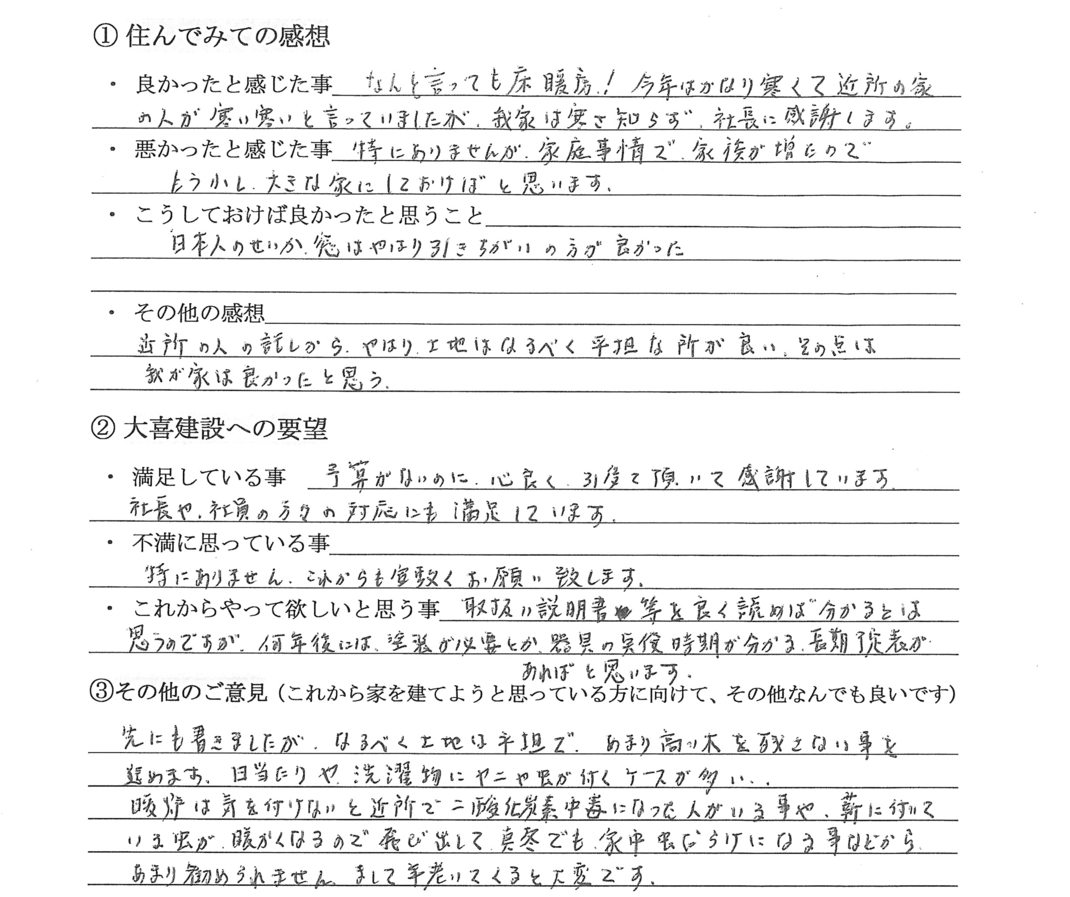 ① 住んでみての感想
・ 良かったと感じた事 なんと言っても床暖房！ 今年はかなり寒くて近所の家
の人が寒い寒いと言っていましたが、我家は寒さ知らず、社長に感謝します。
・ 悪かったと感じた事 特にありませんが、家庭事情で、家族が増たので
もう少し、大きな家にしておけばと思います。
・ こうしておけば良かったと思うこと
日本人のせいか、窓はやはり引きちがいの方が良かった
・ その他の感想
近所の人の話しから、やはり、土地はなるべく平担な所が良い、その点は
我が家は良かったと思う。
② 大喜建設への要望
・ 満足している事 予算がないのに、心良く、引渡て頂いて感謝しています。
社長や、社員の方々の対応にも満足しています。
・ 不満に思っている事
特にありません、これからも宜敷くお願い致します。
・ これからやって欲しいと思う事 取扱い説明書等を良く読めば分かるとは
思うのですが、何年後には、塗装が必要とか、器具の交換時期が分かる、長期予定表が
あればと思います。
③その他のご意見（これから家を建てようと思っている方に向けて、その他なんでも良いです）
先にも書きましたが、なるべく土地は平担で、あまり高い木を残さない事を
進めます、日当たりや、洗濯物にヤニや虫が付くケースが多い、、
暖炉は気を付けないと近所で二酸化炭素中毒になった人がいる事や、薪に付いて
いま虫が、暖かくなるので飛び出して、真冬でも、家中虫だらけになる事などから、
あまり勧められません、まして年老いてくると大変です。